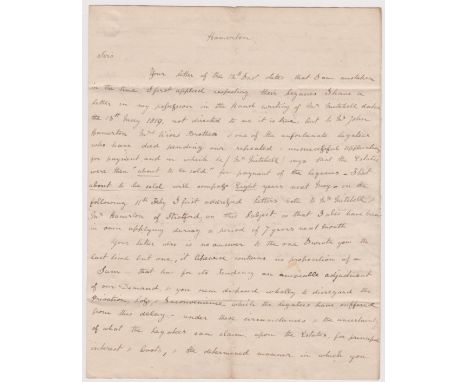 Hamerton
Sirs
Your letter of the 12th Inst. states that I am mistaken
in the time I first applied respecting these legacies I have a
letter in my possession in the hand writing of Mr Mitchell dated
the 13th May 1819, not directed to me it is true, but to Mr John
Hamerton Mrs Brothers & one of the unfortunate legatees
who have died pending our repeated & unsuccessful applications
for payment and in which he /Mr Mitchell/ says that the Estates
were then "about to be sold" for payment of the legacies - that
about to be sold will Eight years next May - on the
following 11th July I first addressed letters both to Mr Mitchell &
Mr Hamerton of Stratford, on this subject so that I also have been
in applying during a period of 7 years next month
Your letter is no answer to the one I wrote you the
last time but one, it contains no proposition of
that has for its tendency an amicable adjustment
of our Demand, & you seem disposed wholly to disregard the
Privation loss & Inconvenience which the legatees have suffered
from this delay - under these circumstances & the uncertainty
of what the legatees can claim upon the Estates for principal
interest & Costs, & the determined manner in which you